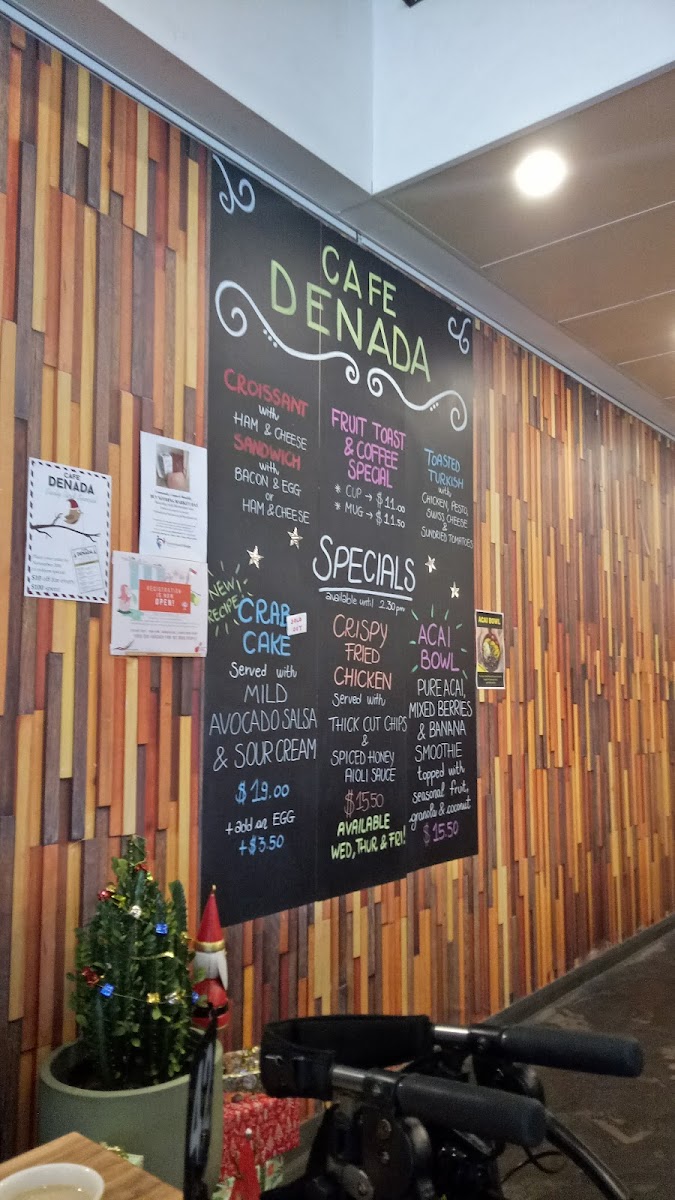 CAFE
DENADA
CROISSANT
with
HAM & CHEESE
SANDWICH
with
BACON & EGG
or
HAM & CHEESE
FRUIT TOAST
& COFFEE
SPECIAL
* CUP → $11.00
* MUG → $11.50
TOASTED
TURKISH
with
CHICKEN, PESTO,
SWISS CHEESE
&
SUNDRIED TOMATOES
SPECIALS
available until 2.30pm
NEW
RECIPE
CRAB
CAKE
SOLD
OUT
Served with
MILD
AVOCADO SALSA
& SOUR CREAM
$19.00
+ add an EGG
+$3.50
CRISPY
FRIED
CHICKEN
Served with
THICK CUT CHIPS
&
SPICED HONEY
AIOLI SAUCE
$15.50
AVAILABLE
WED, THUR & FRI!
ACAI
BOWL
PURE ACAI,
MIXED BERRIES
& BANANA
SMOOTHIE
topped with
seasonal fruit,
granola & coconut
$15.50
CAFE
DENADA
REGISTRATION
IS NOW
OPEN!
ACAI BOWL